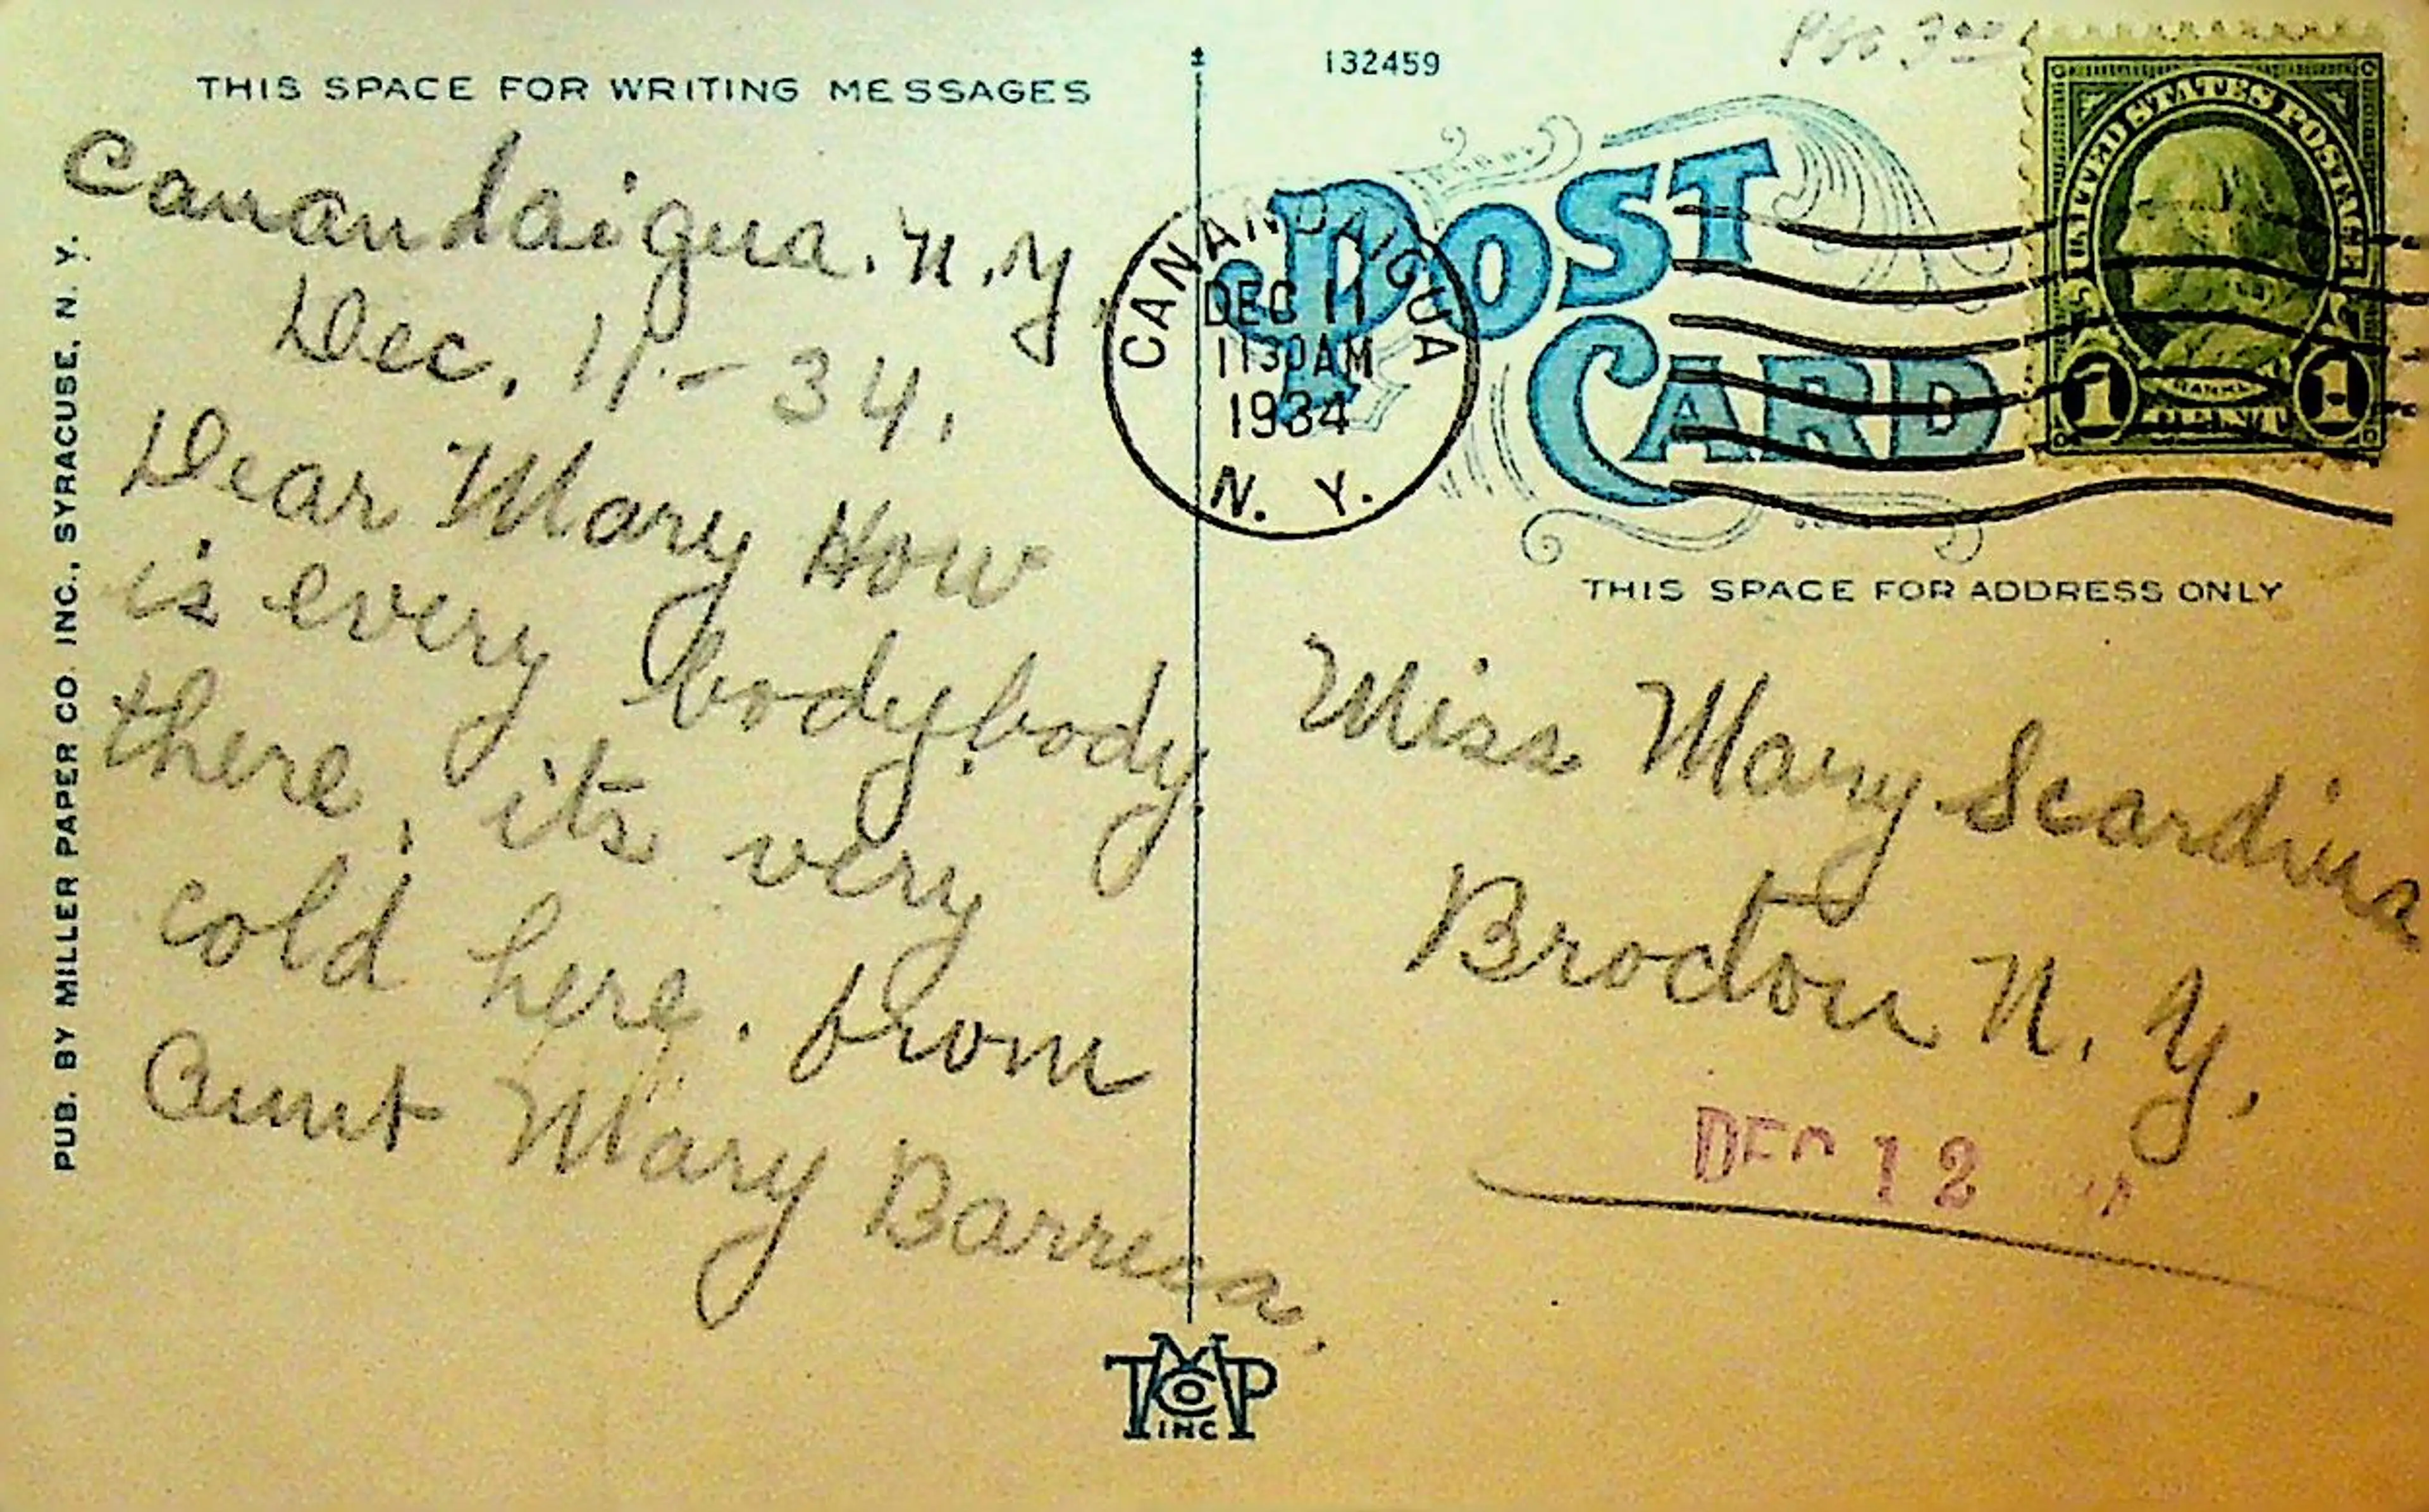 THIS SPACE FOR WRITING MESSAGES
Canandaigua. N.Y.
Dec. 11.- 34.
Dear Mary How
is every body.body
there, its very
cold here. from
Aunt Mary Barreca.
PUB. BY MILLER PAPER CO. INC., SYRACUSE, N. Y.
132459
POST
CARD
CANANDAIGUA
DEC 11
1130AM
1934
N. Y.
UNITED STATES POSTAGE
1 1
THIS SPACE FOR ADDRESS ONLY
Miss Mary Scardina
Brocton N. Y.
DEC 12
TMCOP
INC